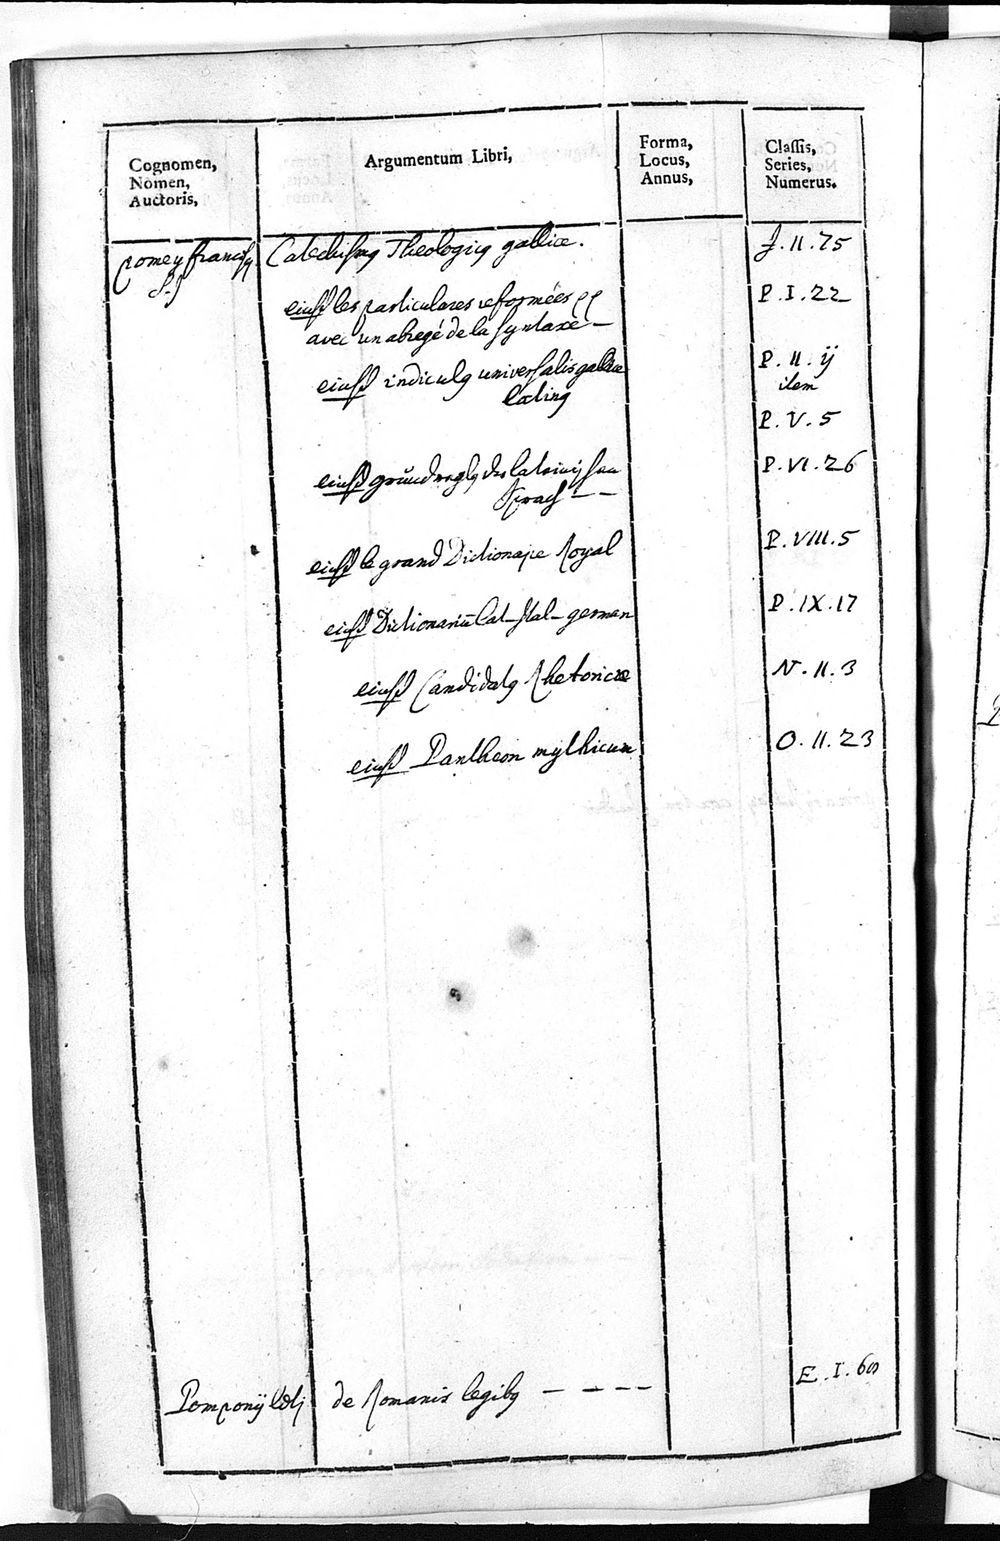 Cognomen,
Nomen,
Auctoris,
Argumentum Libri,
Forma,
Locus,
Annus,
Classis,
Series,
Numerus.
pomey francisꝯ
S.J
Catechismꝯ Theologicꝯ gallice.
J. II. 75
eiusd les particulares reformées
avec un abregé de la syntaxe —
P. I. 22
eiusd indiculꝯ universalis gallico
latinꝯ
P. II. ij
item
P. V. 5
eiusd
Sprach — —
P. VI. 26
eiusd le grand Dictionaire Royal
P. VIII. 5
eiusd Dictionariū lat-Ital-german
P. IX. 17
eiusd Candidatꝯ Rhetoricæ
N. II. 3
eiusd Pantheon mythicum
O. II. 23
Pomponij
de Romanis legibꝯ — — — —
E. I. 60